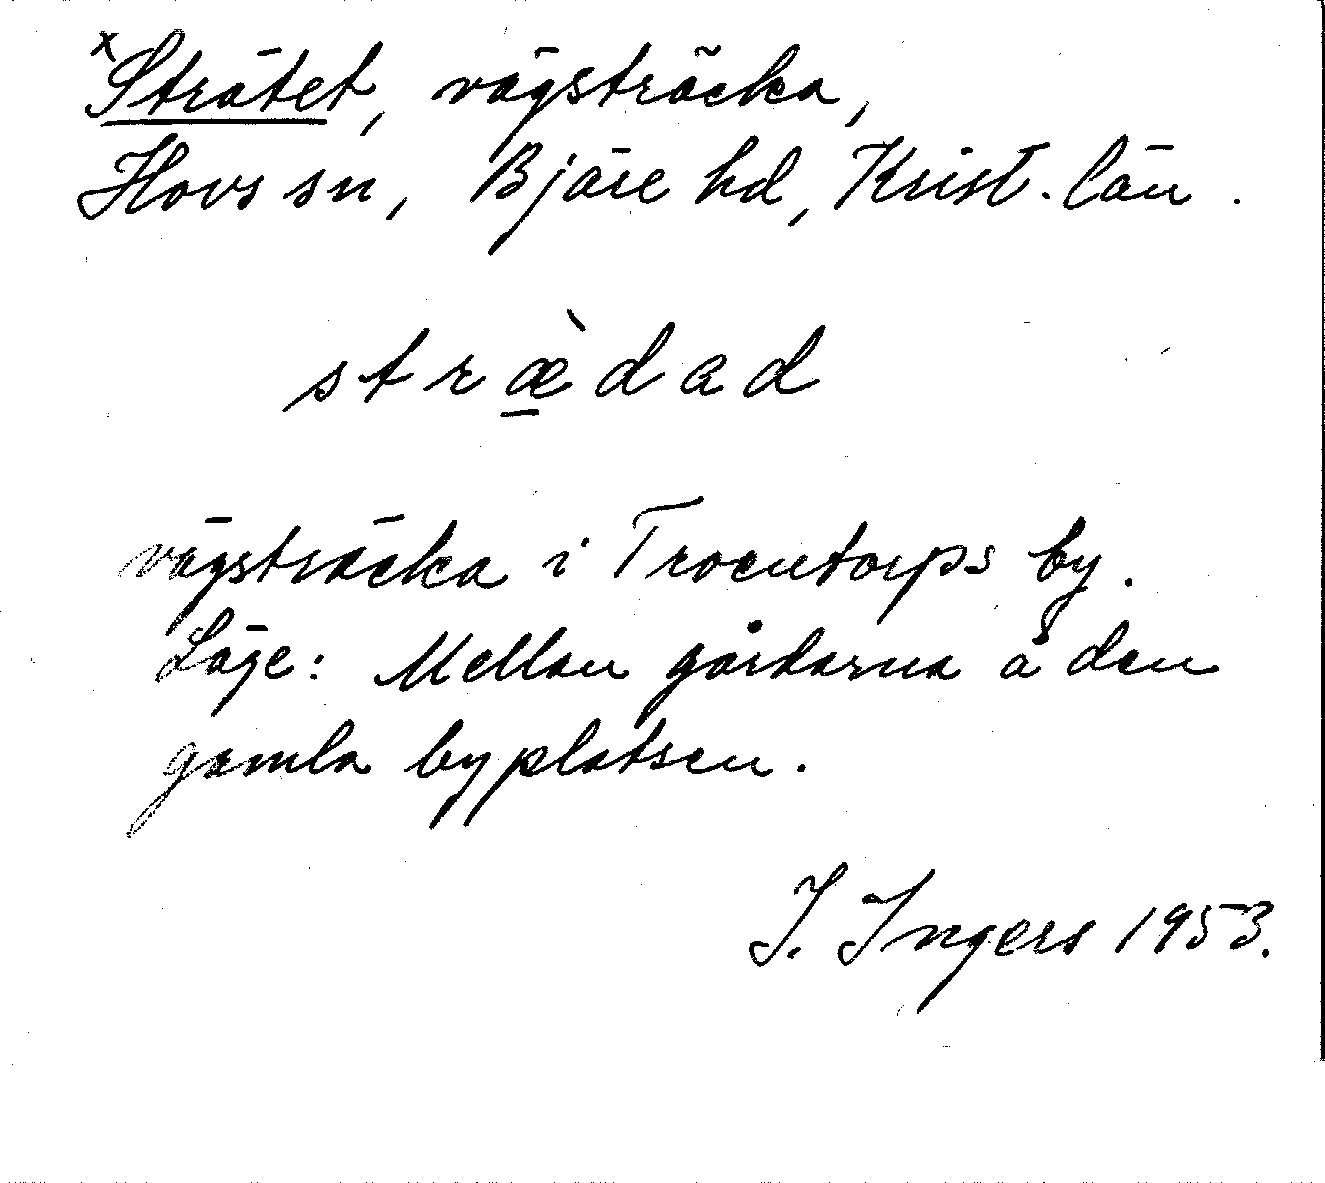 x Strätet, vägsträcka,
Hovs sn, Bjäre hd, Krist. län.
stræ̱̀dad
vägsträcka i Troentorps by.
Läge: Mellan gårdarna å den
gamla byplatsen.
I. Ingers 1953.